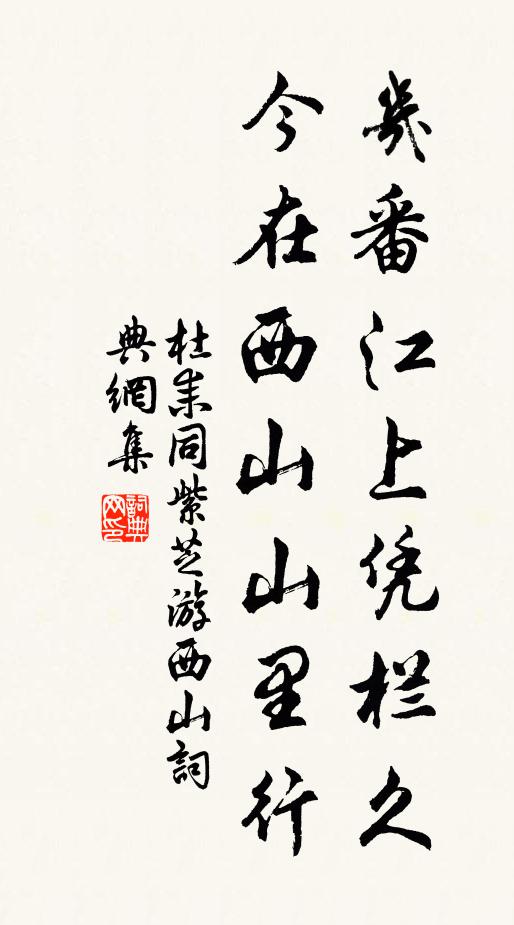 幾番江上凭栏久
今在西山山里行
杜耒同紫芝游西山詞
典網集
詞典网印